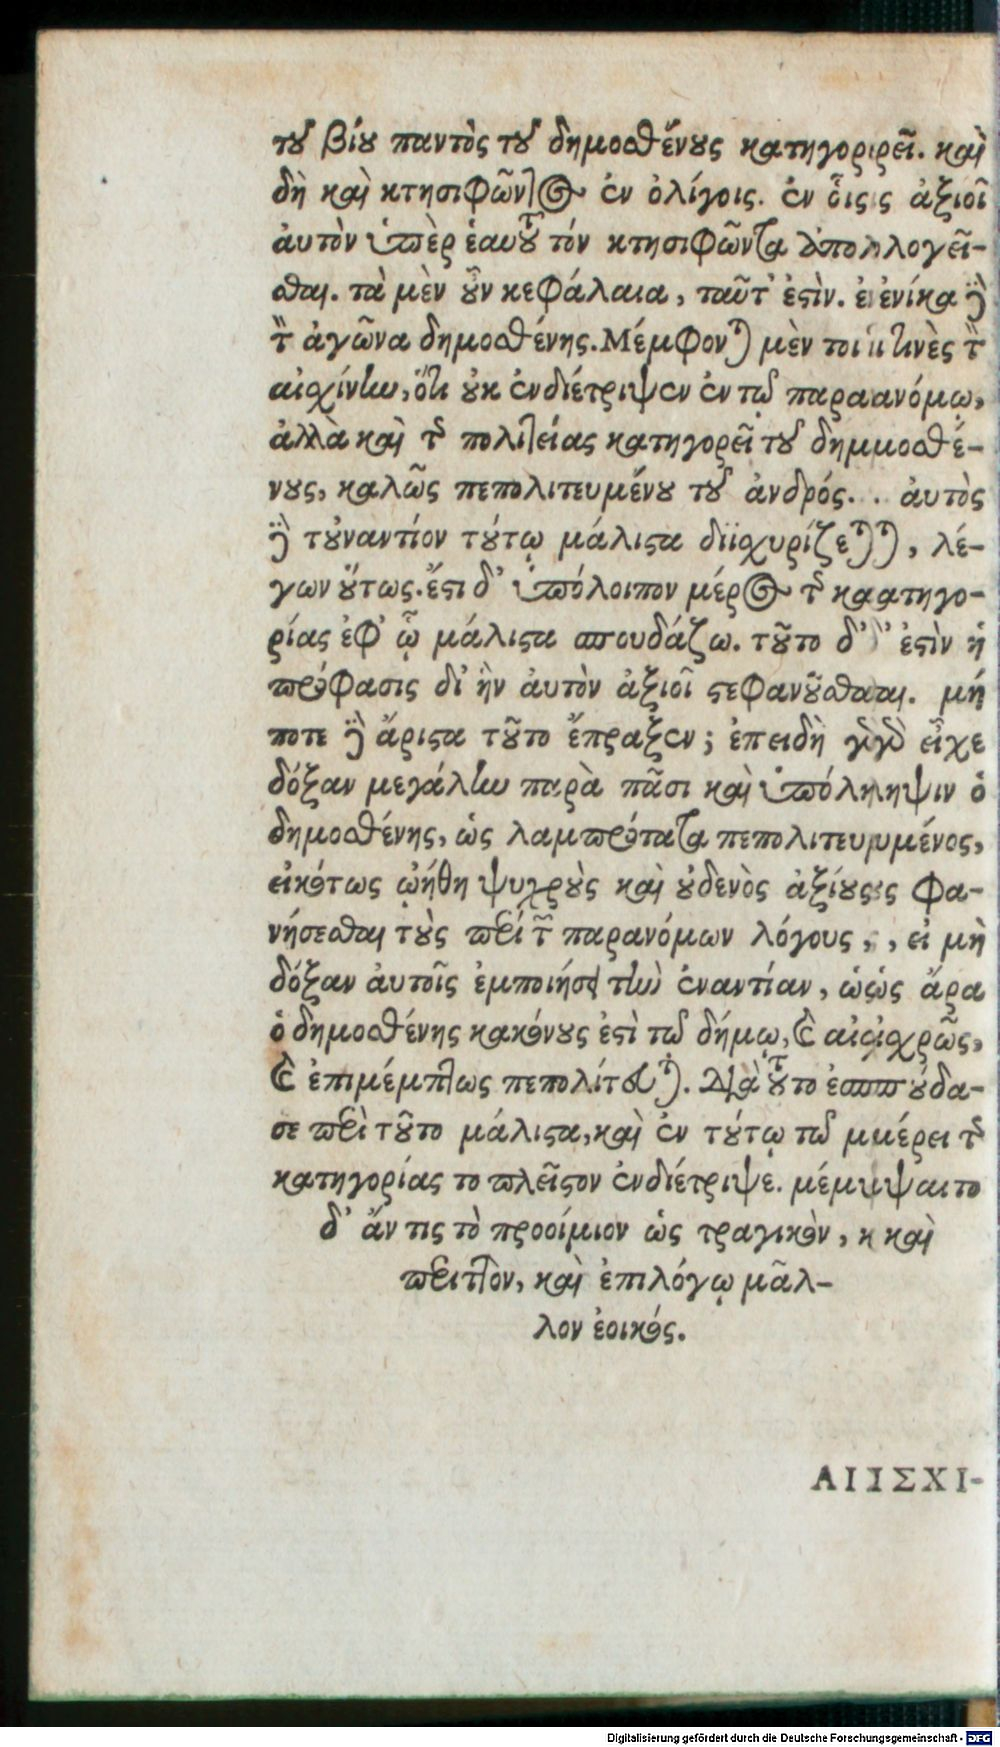 τοῦ βίου παντὸς τοῦ δημοσθένους κατηγορρεῖ. καὶ
δὴ καὶ κτησιφῶντος ἐν ὀλίγοις. ἐν οἷς ς ἀξιοῖ
ἀυτὸν ὑπὲρ ἑαυτοῦ τόν κτησιφῶντα ἀπολλογεῖ-
σθαι. τὰ μὲν οὖν κεφάλαια, ταῦτ' ἐστὶν. ἐενίκα δὲ
τὸν ἀγῶνα δημοσθένης. Μέμφονται μὲν τοι τινὲς τὸν
αἰσχίνην, ὅτι οὐκ ἐνδιέτριψεν ἐν τῷ παραανόμῳ,
ἀλλὰ καὶ τῆς πολιτείας κατηγορεῖ τοῦ δημμοσθέ-
νους, καλῶς πεπολιτευμένου τοῦ ἀνδρός. . ἀυτὸς
δὲ τοὐναντίον τούτῳ μάλιστα διϊσχυρίζεται, λέ-
γων οὕτως. ἔστι δ' ὑπόλοιπον μέρος τῆς καατηγο-
ρίας ἐφ' ᾧ μάλιστα σπουδάζω. τοῦτο δ' ' ἐστὶν ἡ
πρόφασις δι' ἣν ἀυτὸν ἀξιοῖ στεφανοῦσθαι. μή
ποτε δὲ ἄριστα τοῦτο ἔπραξεν; ἐπειδὴ γὰρ εἶχε
δόξαν μεγάλην παρὰ πᾶσι καὶ ὑπόληηψιν ὁ
δημοσθένης, ὡς λαμπρότατα πεπολιτευμμένος,
εἰκότως ᾠήθη ψυχροὺς καὶ οὐδενὸς ἀξίουςς φα-
νήσεσθαι τοὺς περὶ τῶν παρανόμων λόγους , , εἰ μὴ
δόξαν ἀυτοῖς ἐμποιήσει τὴν ἐναντίαν, ὡὡς ἄρα
ὁ δημοσθένης κακόνους ἐστὶ τῷ δήμῳ, καὶ αἰσχρῶς,
καὶ ἐπιμέμπτως πεπολίτευται. διὰ τοῦτο ἐσπούδα-
σε περὶ τοῦτο μάλιστα, καὶ ἐν τούτῳ τῷ μμέρει τῆς
κατηγορίας το πλεῖστον ἐνδιέτριψε. μέμψαιτο
δ' ἄν τις τὸ προοίμιον ὡς τραγικὸν, κ καὶ
περιττὸν, καὶ ἐπιλόγῳ μᾶλ-
λον ἐοικός.
ΑΙΙΣΧΙ-
Digitalisierung gefördert durch die Deutsche Forschungsgemeinschaft - DFG